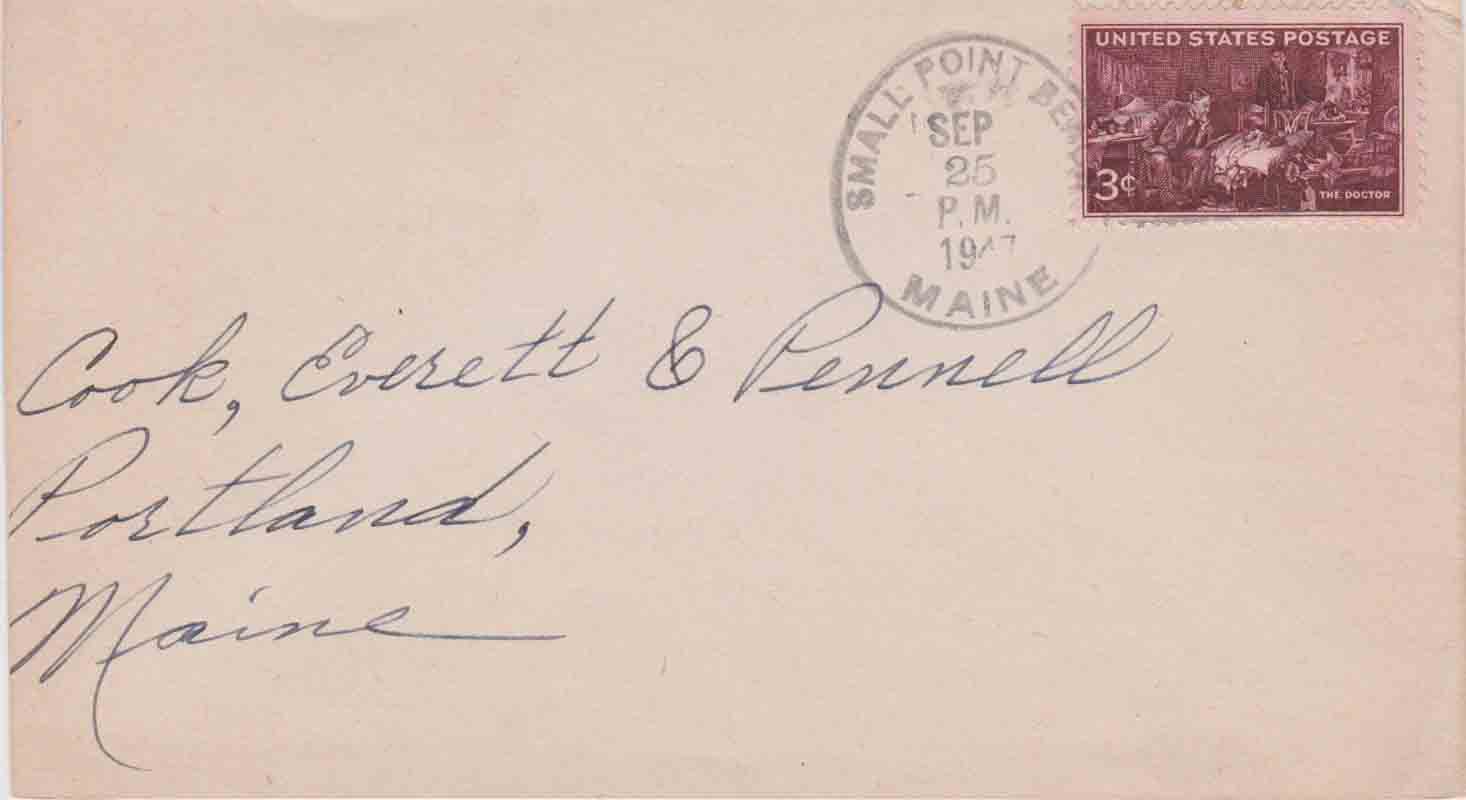 SMALL POINT BEACH
SEP
25
P.M.
1947
MAINE
UNITED STATES POSTAGE
3¢
THE DOCTOR
Cook, Everett & Pennell
Portland,
Maine